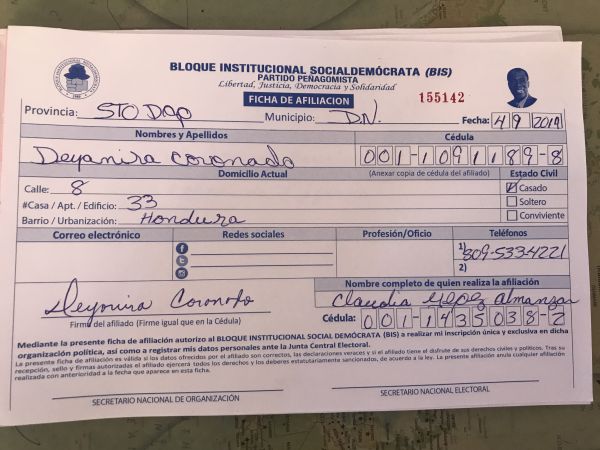 BLOQUE INSTITUCIONAL SOCIALDEMÓCRATA (BIS)
PARTIDO PEÑAGOMISTA
Libertad, Justicia, Democracia y Solidaridad
FICHA DE AFILIACION
155142
Provincia: STO DGO Municipio: D.N. Fecha: 4 9 2019
Nombres y Apellidos Cédula
Deyanira Coronado 001-1091189-8
Domicilio Actual (Anexar copia de cédula del afiliado) Estado Civil
Calle: 8 Casado
#Casa / Apt. / Edificio: 33 Soltero
Barrio / Urbanización: Hondura Conviviente
Correo electrónico Redes sociales Profesión/Oficio Teléfonos
1) 809-533-4221
2)
Nombre completo de quien realiza la afiliación
Deyanira Coronado Claudia Almanzar
Firma del afiliado (Firme igual que en la Cédula) Cédula: 001-1435038-2
Mediante la presente ficha de afiliación autorizo al BLOQUE INSTITUCIONAL SOCIAL DEMÓCRATA (BIS) a realizar mi inscripción única y exclusiva en dicha
organización política, así como a registrar mis datos personales ante la Junta Central Electoral.
La presente ficha de afiliación es válida si los datos ofrecidos por el afiliado son correctos, las declaraciones veraces y si el afiliado tiene el disfrute de sus derechos civiles y politicos. Tras su
recepción, sello y firmas autorizadas el afiliado ejercerá todos los derechos y los deberes estatutariamente sancionados, de acuerdo a la ley. La presente afiliación anula cualquier afiliación
realizada con anterioridad a la ficha que aparece en esta ficha.
SECRETARIO NACIONAL DE ORGANIZACIÓN SECRETARIO NACIONAL ELECTORAL